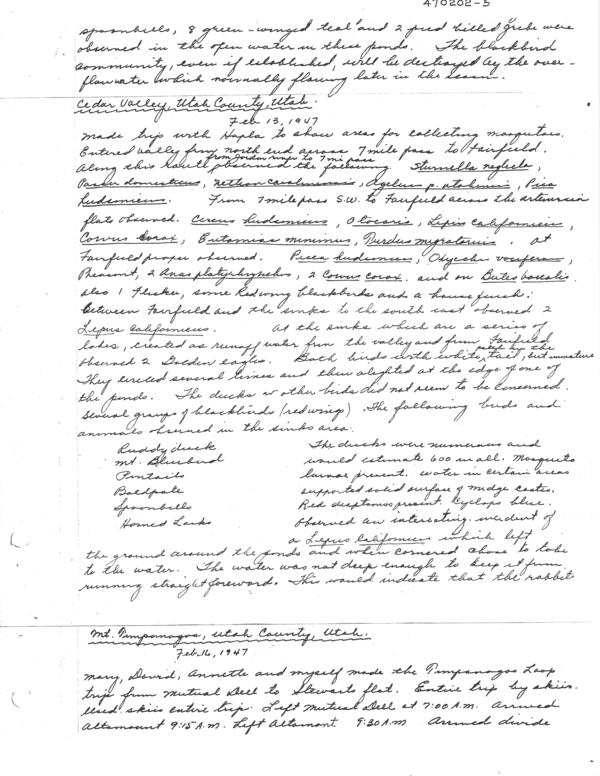 470202-5
spoonbills, 8 green-winged teal and 2 pied billed grebe were
observed in the open water in these ponds. The blackbird
community, even if established, will be destroyed by the over-
flow water which normally flowing later in the season.
Cedar Valley, Utah County, Utah.
Feb 13, 1947
Made trip with Hapla to show areas for collecting mosquitoes.
Entered valley from north end across 7 mile pass to Fairfield.
from Jordan river to 7 mi pass
Along this route observed the following Sturnella neglecta,
Passer domesticus, Agelius p. utahensis, Pica
hudsonicus. From 7 mile pass S.W. to Fairfield across the artemisia
flats observed. Circus hudsonicus, Otocoris, Lepus californicus,
Corvus corax, Eutamias minimus, Turdus migratorius. At
Fairfield proper observed. Pica hudsonicus, Oxyechus vociferus,
Pheasant, 2 Anas platyrhynchos, 2 Corvus corax. and on Buteo borealis.
also 1 Flicker, some Redwing blackbirds and a house finch.
Between Fairfield and the sinks to the south east observed 2
Lepus californicus. At the sinks which are a series of
lakes, created as runoff water from the valley and from Fairfield
observed 2 Golden eagles. Both birds with white tail, but immature
They circled several times and then alighted at the edge of one of
the ponds. The ducks or other birds did not seem to be concerned.
Several groups of blackbirds (redwings). The following birds and
animals observed in the sinks area.
Ruddy duck
Mt. Bluebird
Pintails
Baldpate
Spoonbills
Horned Larks
The ducks were numerous and
would estimate 600 in all. Mosquito
larvae present. Water in certain areas
supported solid surface of midge castes.
Red diaptomus present. Cyclops blue.
Observed an interesting incident of
a Lepus californicus which left
the ground around the ponds and when cornered chose to take
to the water. The water was not deep enough to keep it from
running straight foreword. This would indicate that the rabbit
Mt. Timpanogos, Utah County, Utah.
Feb. 16, 1947
Mary, David, Annette and myself made the Timpanogos Loop
trip from Mutual Dell to Stewarts flat. Entire trip by skiis.
Used skiis entire trip. Left Mutual Dell at 7:00 A.M. Arrived
Altamount 9:15 A.M. Left Altamont 9:30 A.M Arrived divide